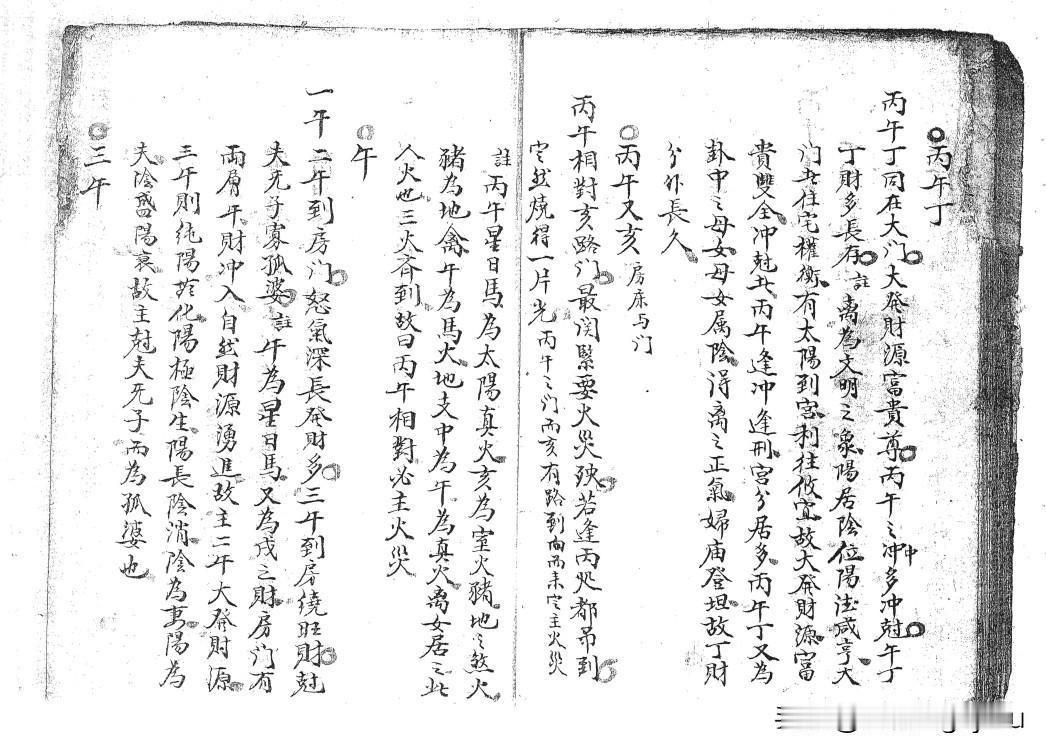 丙午丁
丙午丁同在大门大発財源富貴尊丙午之冲多冲尅午丁
中
丁財多長存註离為文明之象陽居陰位陽法咸亨大
门此住宅權衡有太陽到宮利往攸宜故大発財源富
貴雙全冲尅此丙午逢冲逢刑宮分居多丙午丁又為
卦中之母女母女属陰得离之正氣婦庙登坦故丁財
分外長久
丙午又亥 房床与门
丙午相對亥路门最関緊要火災殃若逢丙処都吊到
定然燒得一片光 丙午之门而亥有路到向而来定主火災
註丙午星日馬為太陽真火亥為室火豬地之煞火
豬為地禽午為馬火地支中為午為真火离女居之此
人火也三火斉到故曰丙午相對必主火災
午
一午二午到房门怒氣深長発財多三午到房繞旺財尅
夫旡子寡孤婆註午為星日馬又為戌之財房门有
両肩午財冲入自然財源湧進故主二午大発財源
三午則純陽於化陽極陰生陽長陰消陰為妻陽為
夫陰盛陽衰故主尅夫旡子而為孤婆也
三午